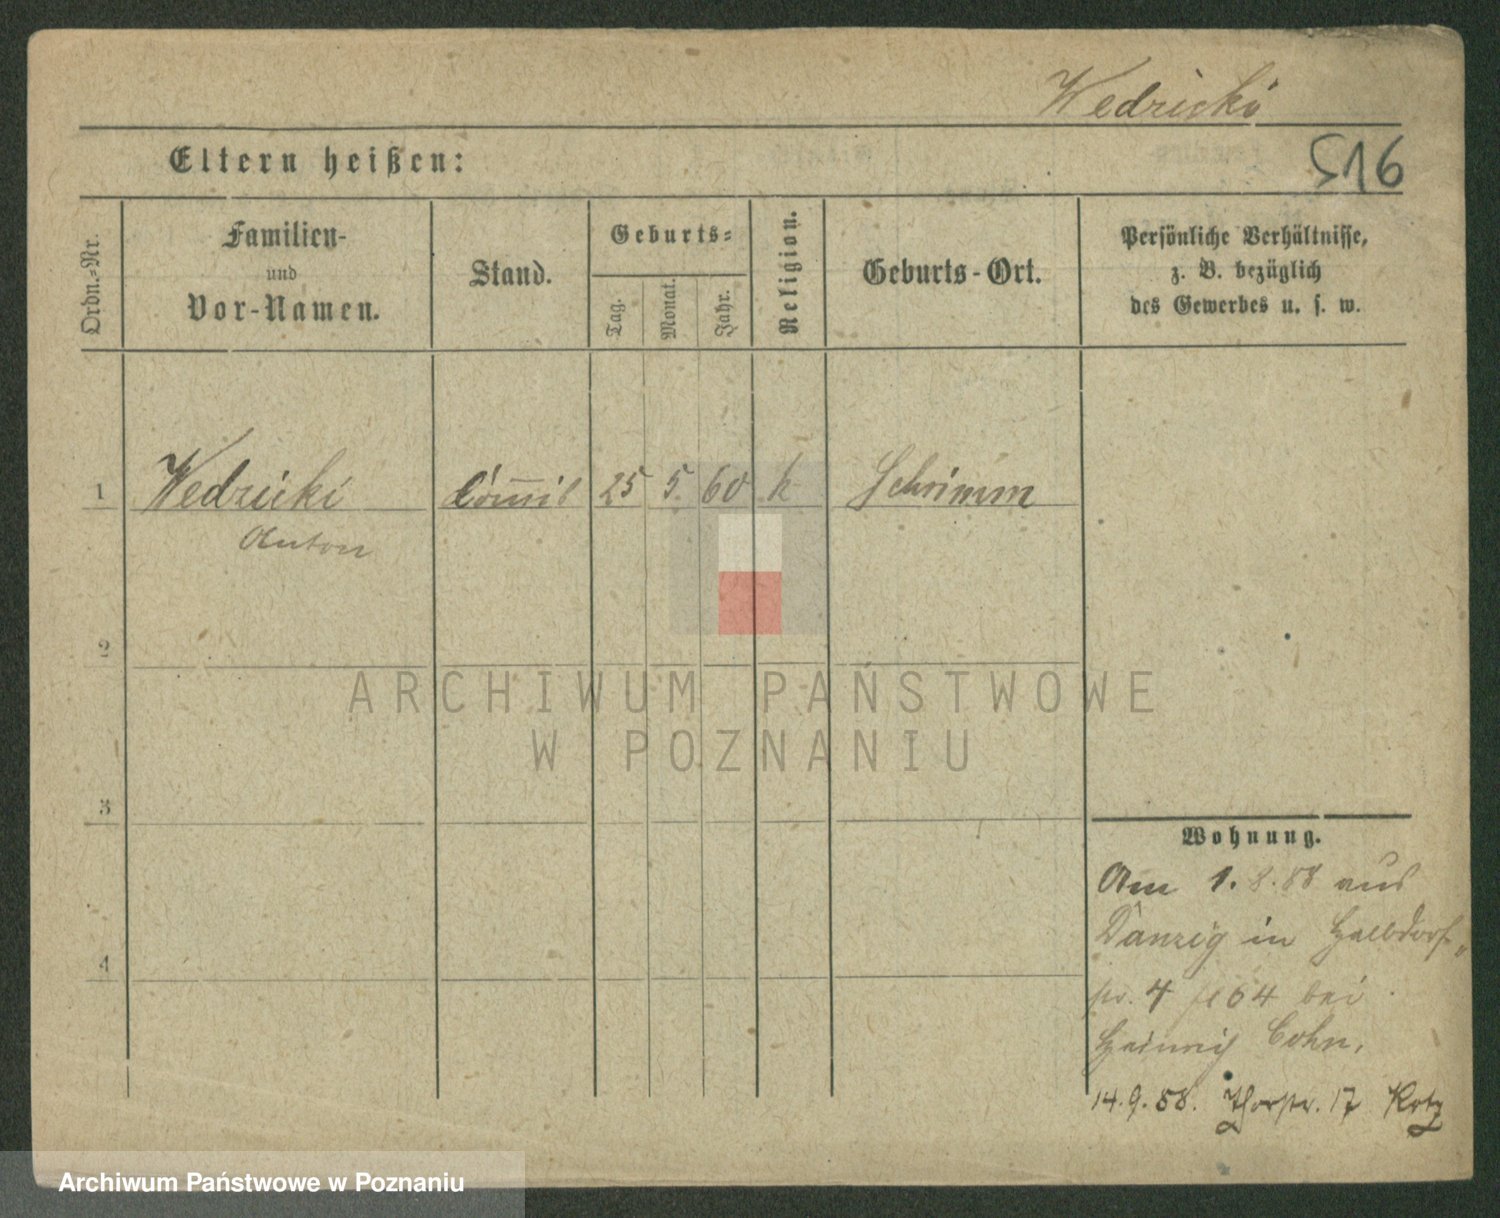 Wedricki
Eltern heißen:
516
Ordn.-Nr.
Familien-
und
Vor-Namen.
Stand.
Geburts-
Tag.
Monat.
Jahr.
Religion.
Geburts-Ort.
Persönliche Verhältnisse,
z. B. bezüglich
des Gewerbes u. s. w.
1 Wedricki Commis 25 5. 60 k Schrimm
Anton
2
ARCHIWUM PAŃSTWOWE
W POZNANIU
3
Wohnung.
Am 1.8.88 aus
Danzig in Halbdorf-
4
str. 4 bei
Heinrich Cohn.
14.9.88. Thorstr. 17
Archiwum Państwowe w Poznaniu